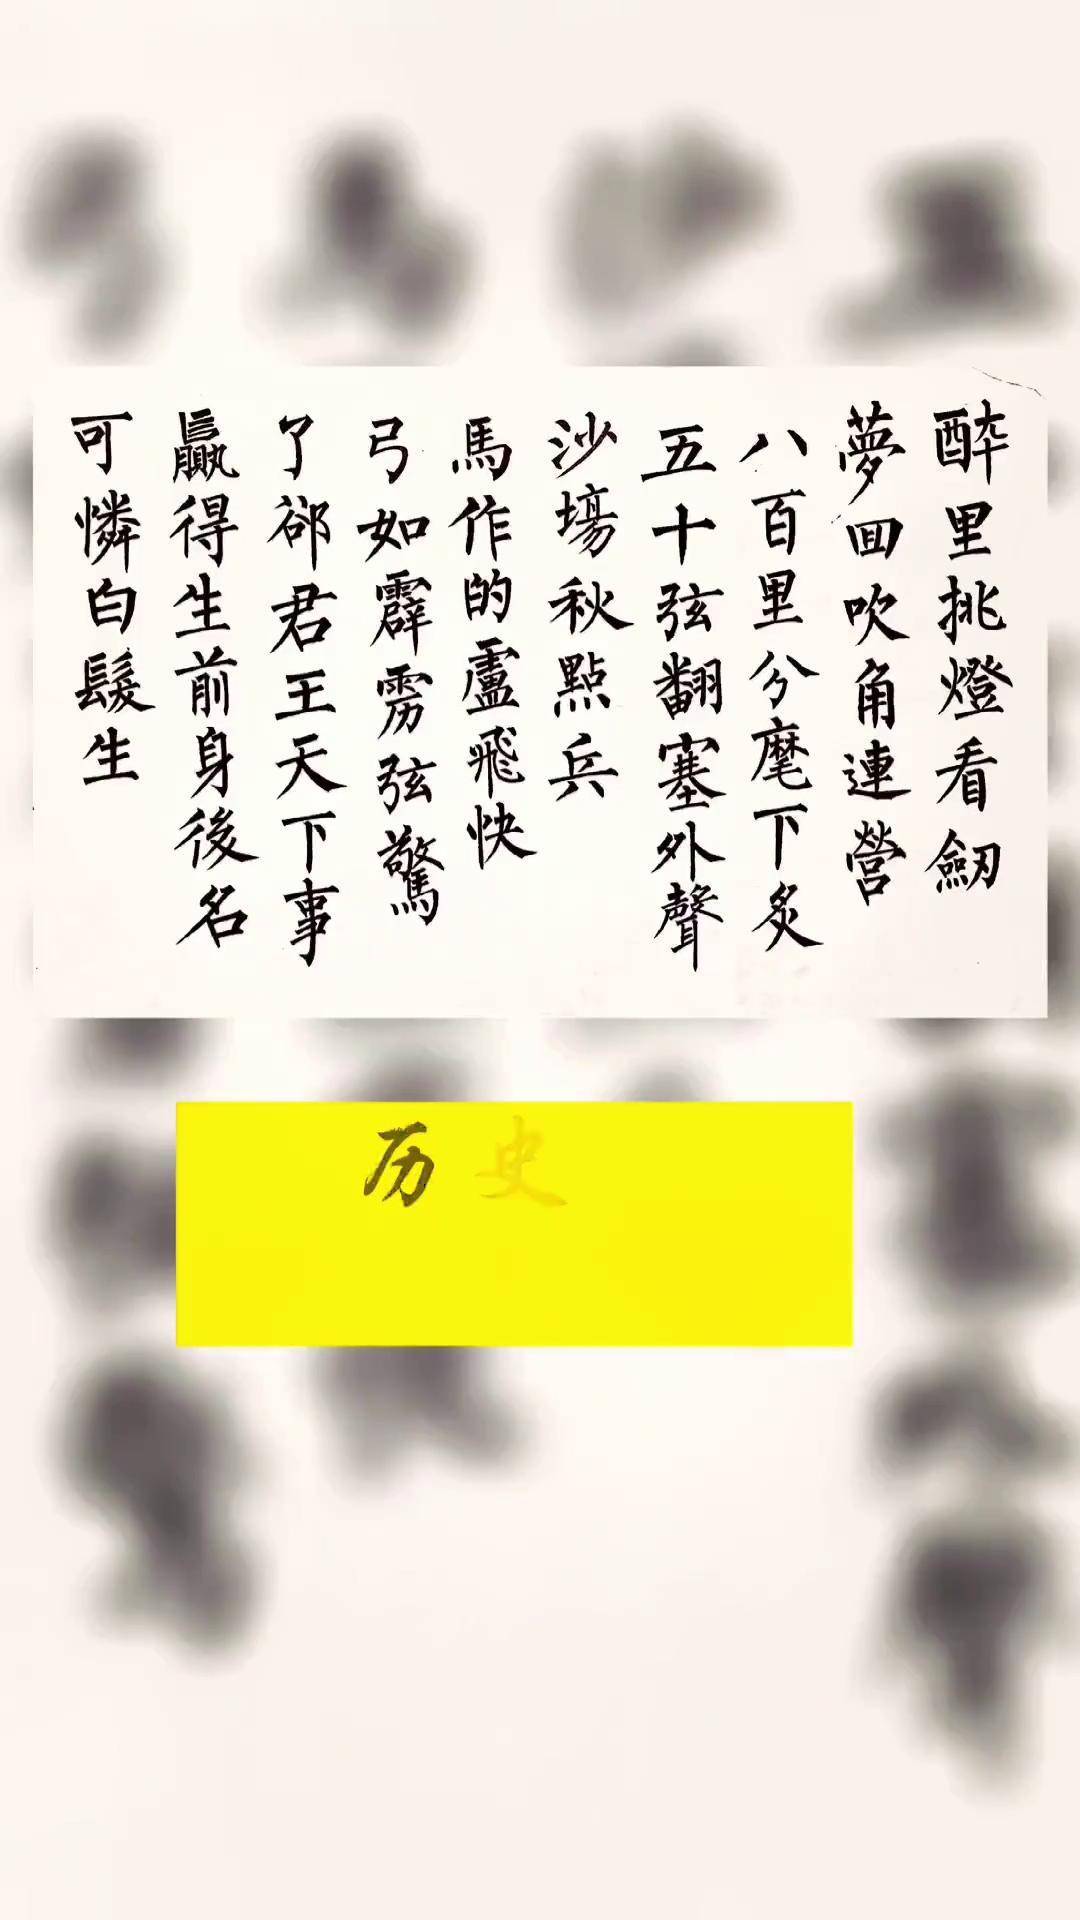 醉里挑燈看劒
夢回吹角連營
八百里分麾下炙
五十弦翻塞外聲
沙場秋點兵
馬作的盧飛快
弓如霹雳弦驚
了郤君王天下事
贏得生前身後名
可憐白髮生
历史